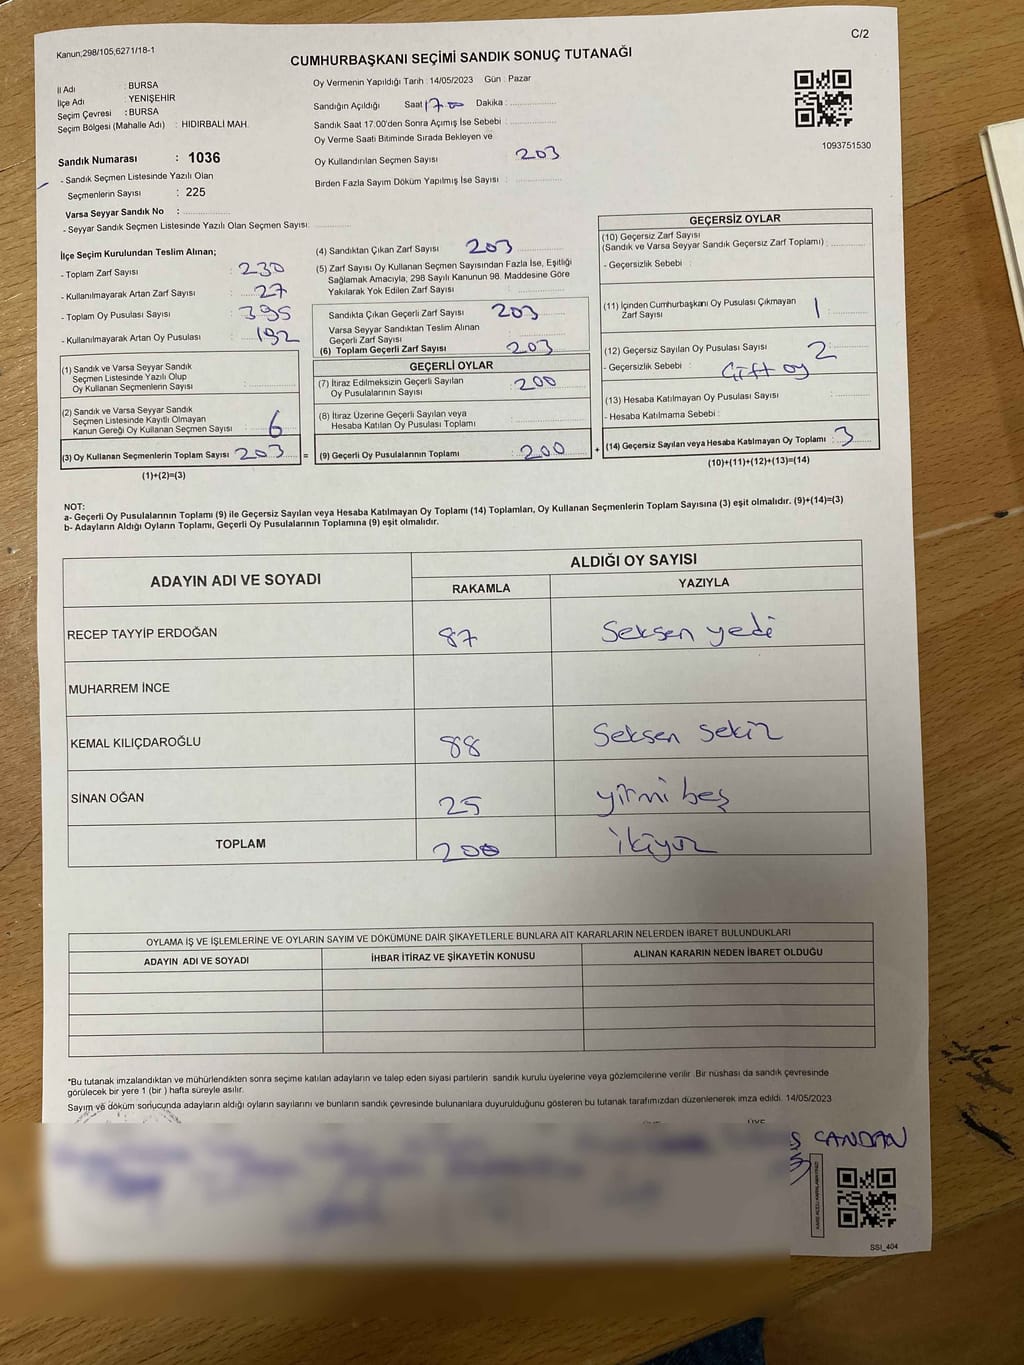 Kanun;298/105,6271/18-1
C/2
CUMHURBAŞKANI SEÇİMİ SANDIK SONUÇ TUTANAĞI
İl Adı : BURSA
İlçe Adı : YENİŞEHİR
Seçim Çevresi : BURSA
Seçim Bölgesi (Mahalle Adı) : HIDIRBALİ MAH.
Sandık Numarası : 1036
- Sandık Seçmen Listesinde Yazılı Olan
Seçmenlerin Sayısı : 225
Varsa Seyyar Sandık No :
- Seyyar Sandık Seçmen Listesinde Yazılı Olan Seçmen Sayısı:
Oy Vermenin Yapıldığı Tarih : 14/05/2023 Gün : Pazar
Sandığın Açıldığı Saat 17.00 Dakika :
Sandık Saat 17:00'den Sonra Açımış İse Sebebi :
Oy Verme Saati Bitiminde Sırada Bekleyen ve
Oy Kullandırılan Seçmen Sayısı 203
Birden Fazla Sayım Döküm Yapılmış İse Sayısı :
1093751530
İlçe Seçim Kurulundan Teslim Alınan;
- Toplam Zarf Sayısı : 230
- Kullanılmayarak Artan Zarf Sayısı : 27
- Toplam Oy Pusulası Sayısı : 395
- Kullanılmayarak Artan Oy Pusulası : 192
(1) Sandık ve Varsa Seyyar Sandık
Seçmen Listesinde Yazılı Olup
Oy Kullanan Seçmenlerin Sayısı :
(2) Sandık ve Varsa Seyyar Sandık
Seçmen Listesinde Kayıtlı Olmayan
Kanun Gereği Oy Kullanan Seçmen Sayısı : 6
(3) Oy Kullanan Seçmenlerin Toplam Sayısı : 203
(1)+(2)=(3)
(4) Sandıktan Çıkan Zarf Sayısı : 203
(5) Zarf Sayısı Oy Kullanan Seçmen Sayısından Fazla İse, Eşitliği
Sağlamak Amacıyla, 298 Sayılı Kanunun 98. Maddesine Göre
Yakılarak Yok Edilen Zarf Sayısı :
Sandıkta Çıkan Geçerli Zarf Sayısı : 203
Varsa Seyyar Sandıktan Teslim Alınan
Geçerli Zarf Sayısı :
(6) Toplam Geçerli Zarf Sayısı : 203
GEÇERLİ OYLAR
(7) İtiraz Edilmeksizin Geçerli Sayılan
Oy Pusulalarının Sayısı : 200
(8) İtiraz Üzerine Geçerli Sayılan veya
Hesaba Katılan Oy Pusulası Toplamı :
(9) Geçerli Oy Pusulalarının Toplamı : 200
=
+
GEÇERSİZ OYLAR
(10) Geçersiz Zarf Sayısı
(Sandık ve Varsa Seyyar Sandık Geçersiz Zarf Toplamı) :
- Geçersizlik Sebebi :
(11) İçinden Cumhurbaşkanı Oy Pusulası Çıkmayan
Zarf Sayısı : 1
(12) Geçersiz Sayılan Oy Pusulası Sayısı : 2
- Geçersizlik Sebebi : Çift oy
(13) Hesaba Katılmayan Oy Pusulası Sayısı :
- Hesaba Katılmama Sebebi :
(14) Geçersiz Sayılan veya Hesaba Katılmayan Oy Toplamı : 3
(10)+(11)+(12)+(13)=(14)
NOT:
a- Geçerli Oy Pusulalarının Toplamı (9) ile Geçersiz Sayılan veya Hesaba Katılmayan Oy Toplamı (14) Toplamları, Oy Kullanan Seçmenlerin Toplam Sayısına (3) eşit olmalıdır. (9)+(14)=(3)
b- Adayların Aldığı Oyların Toplamı, Geçerli Oy Pusulalarının Toplamına (9) eşit olmalıdır.
ADAYIN ADI VE SOYADI
ALDIĞI OY SAYISI
RAKAMLA YAZIYLA
RECEP TAYYİP ERDOĞAN 87 Seksen yedi
MUHARREM İNCE
KEMAL KILIÇDAROĞLU 88 Seksen sekiz
SİNAN OĞAN 25 yirmi beş
TOPLAM 200 ikiyüz
OYLAMA İŞ VE İŞLEMLERİNE VE OYLARIN SAYIM VE DÖKÜMÜNE DAİR ŞİKAYETLERLE BUNLARA AİT KARARLARIN NELERDEN İBARET BULUNDUKLARI
ADAYIN ADI VE SOYADI İHBAR İTİRAZ VE ŞİKAYETİN KONUSU ALINAN KARARIN NEDEN İBARET OLDUĞU
*Bu tutanak imzalandıktan ve mühürlendikten sonra seçime katılan adayların ve talep eden siyasi partilerin sandık kurulu üyelerine veya gözlemcilerine verilir .Bir nüshası da sandık çevresinde
görülecek bir yere 1 (bir ) hafta süreyle asılır.
Sayım ve döküm sonucunda adayların aldığı oyların sayılarını ve bunların sandık çevresinde bulunanlara duyurulduğunu gösteren bu tutanak tarafımızdan düzenlenerek imza edildi. 14/05/2023
CANDAN
SSI_404